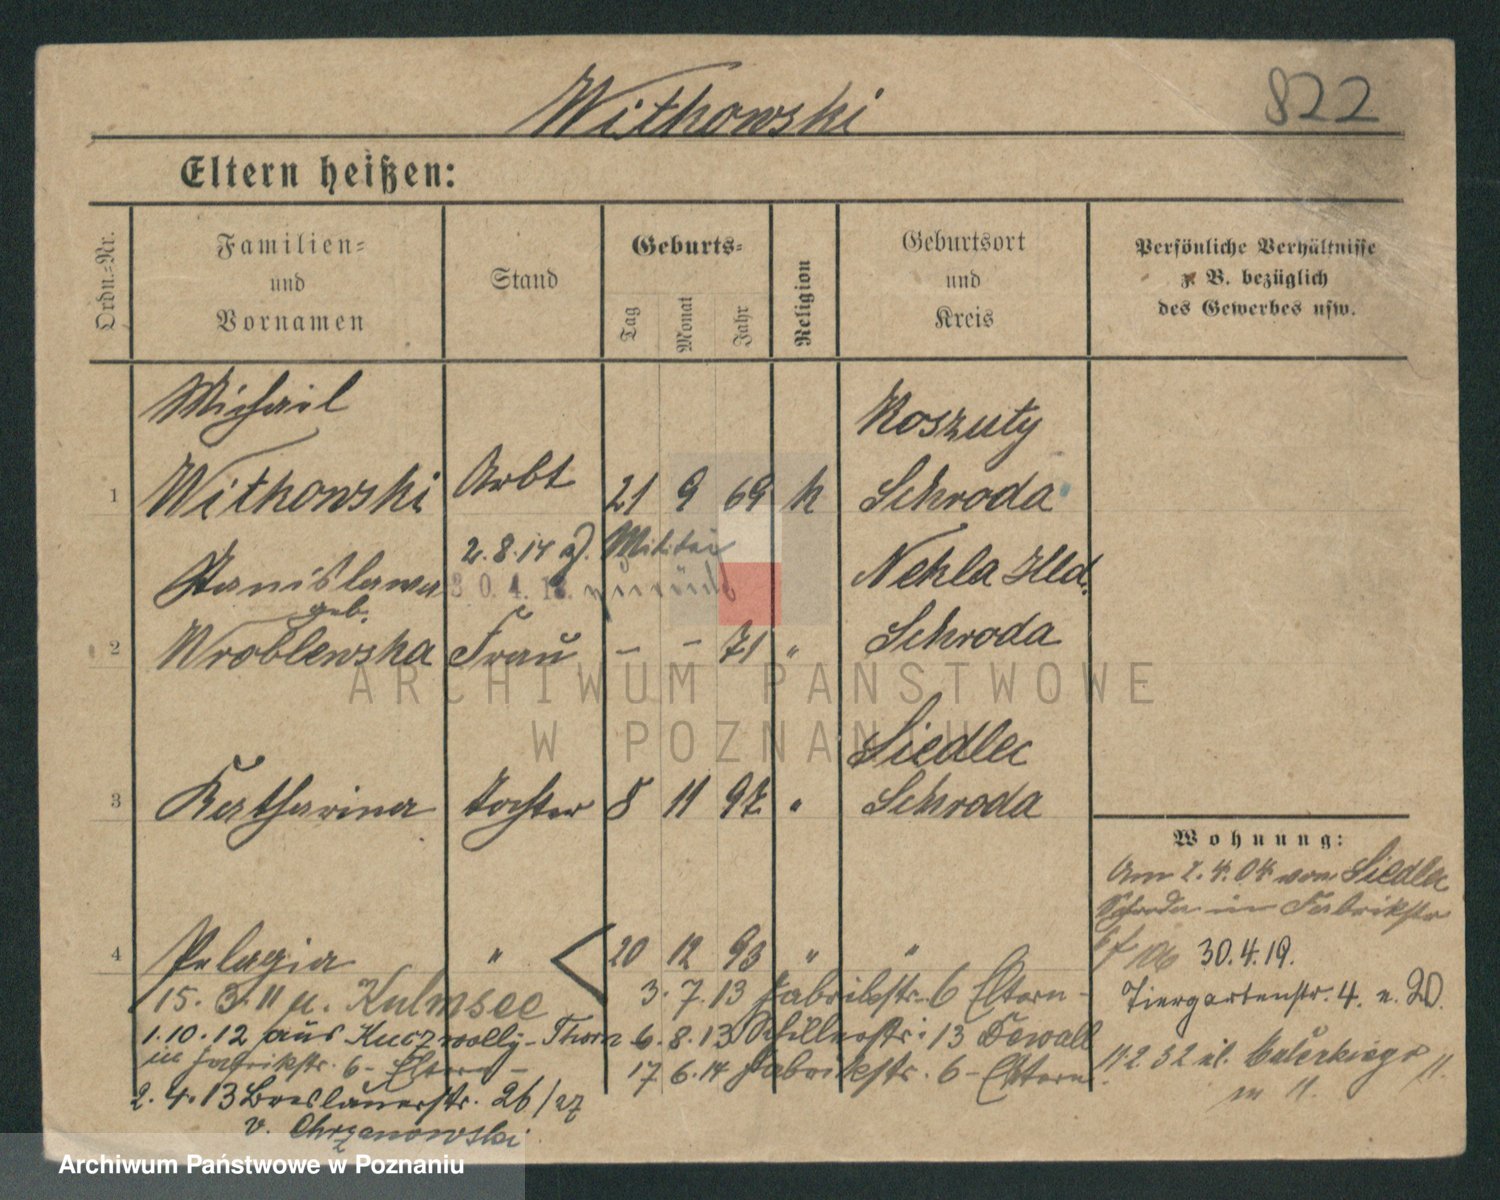 Witkowski
822
Eltern heißen:
Ordn.-Nr.
Familien-
und
Vornamen
Stand
Geburts-
Tag
Monat
Jahr
Religion
Geburtsort
und
Kreis
Persönliche Verhältnisse
z. B. bezüglich
des Gewerbes usw.
Michail
Koszuty
1 Witkowski Arbt 21 9 69 k Schroda
2.8.14 z. Militär
Stanislawa 30.4.18. zurück Nekla Hld.
geb.
2 Wroblewska Frau - - 71 " Schroda
Siedlec
3 Katharina Tochter 8 11 97 " Schroda
Wohnung:
Am 2.4.04 von Siedlec
Schroda in Fabrikstr
4 Pelagia " 20 12 93 " "
6 30.4.19.
15. 3. 11 n. Kulmsee
3. 7. 13 Fabrikstr. 6 Eltern -
Tiergartenstr. 4.
1.10.12 aus - Thorn
6. 8. 13 Schillerstr. 13
in Fabrikstr. 6 - Eltern -
17 6. 14 Fabrikstr. 6 - Eltern
11.2 32 ul.
2. 4. 13 Breslauerstr. 26/27
v. Chrzanowski
ARCHIWUM PAŃSTWOWE
W POZNANIU
Archiwum Państwowe w Poznaniu